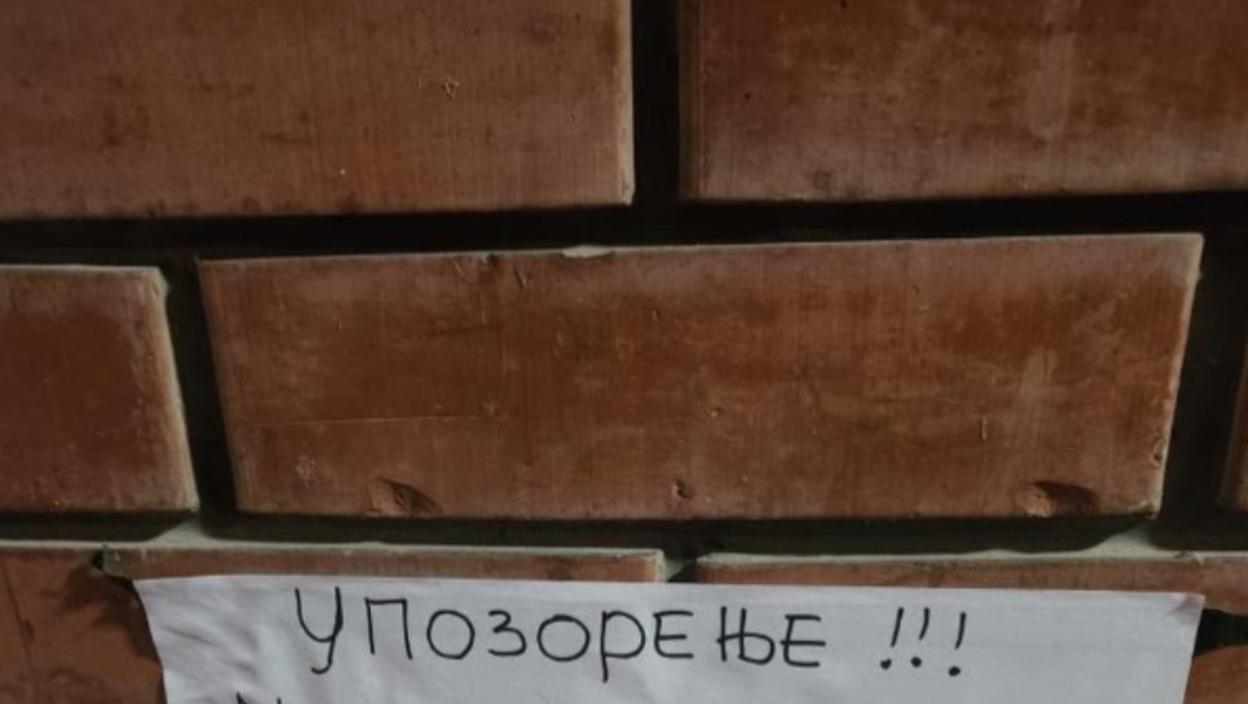 УПОЗОРЕЊЕ !!!